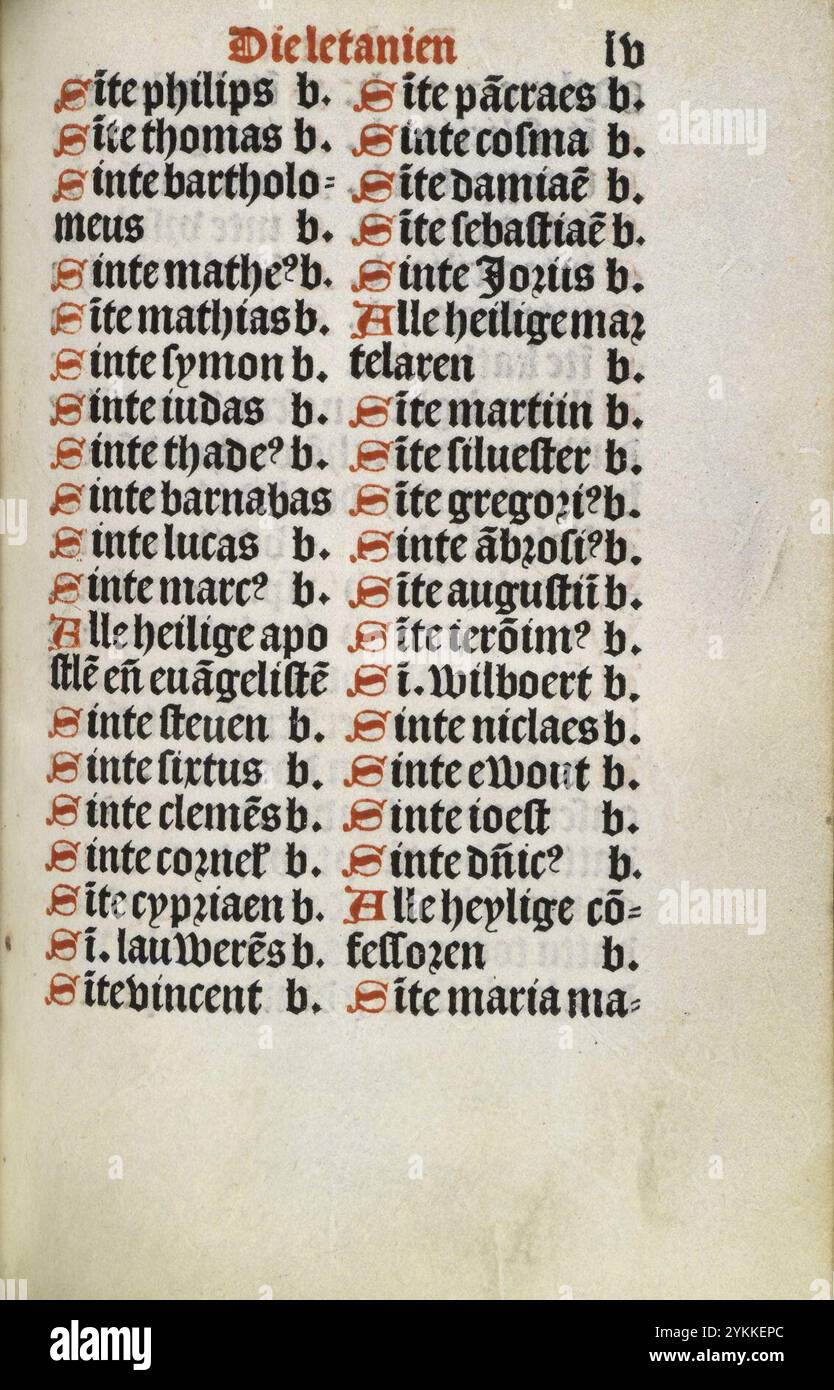 Die letanien lv
Sīte philips b.
Sīte thomas b.
Sinte bartholo=
meus b.
Sinte matheꝰ b.
Sīte mathias b.
Sinte symon b.
Sinte iudas b.
Sinte thadeꝰ b.
Sinte barnabas
Sinte lucas b.
Sinte marcꝰ b.
Alle heilige apo
stlē en̄ euāgelistē
Sinte steuen b.
Sinte sixtus b.
Sinte clemēs b.
Sinte cornel̛ b.
Sīte cypriaen b.
Sī. lauwerēs b.
Sīte vincent b.
Sīte pācraes b.
Sinte cosma b.
Sīte damiaē b.
Sīte sebastiaē b.
Sinte Joriis b.
Alle heilige mar
telaren b.
Sīte martiin b.
Sīte siluester b.
Sīte gregoriꝰ b.
Sinte ābrosiꝰ b.
Sīte augustiī b.
Sīte ierōimꝰ b.
Sī. wilboert b.
Sinte niclaes b.
Sinte ewout b.
Sinte ioest b.
Sinte dn̄icꝰ b.
Alle heylige cō=
fessoren b.
Sīte maria ma=
alamy
alamy
alamy
Image ID: 2YKKEPC
www.alamy.com